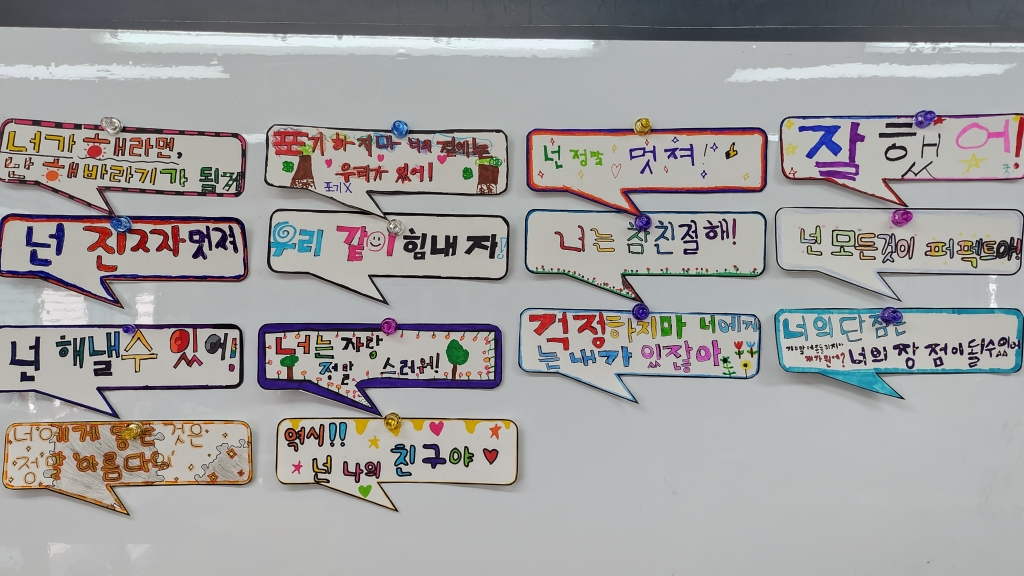 너가 해라면,
난 해바라기가 될게
포기 하지마 너의 곁에는
우리가 있어!
포기X
넌 정말 멋져!
잘했어!
넌 진짜 멋져
우리 같이 힘내자!
너는 참 친절해!
넌 모든것이 퍼펙트야!
넌 해낼수 있어!
너는 자랑
정말 스러워!
걱정하지마 너에게
는 내가 있잖아
너의 단점은
너의 장점이 될수있어
너에게 있는 것은
정말 아름다워
역시!!
넌 나의 친구야